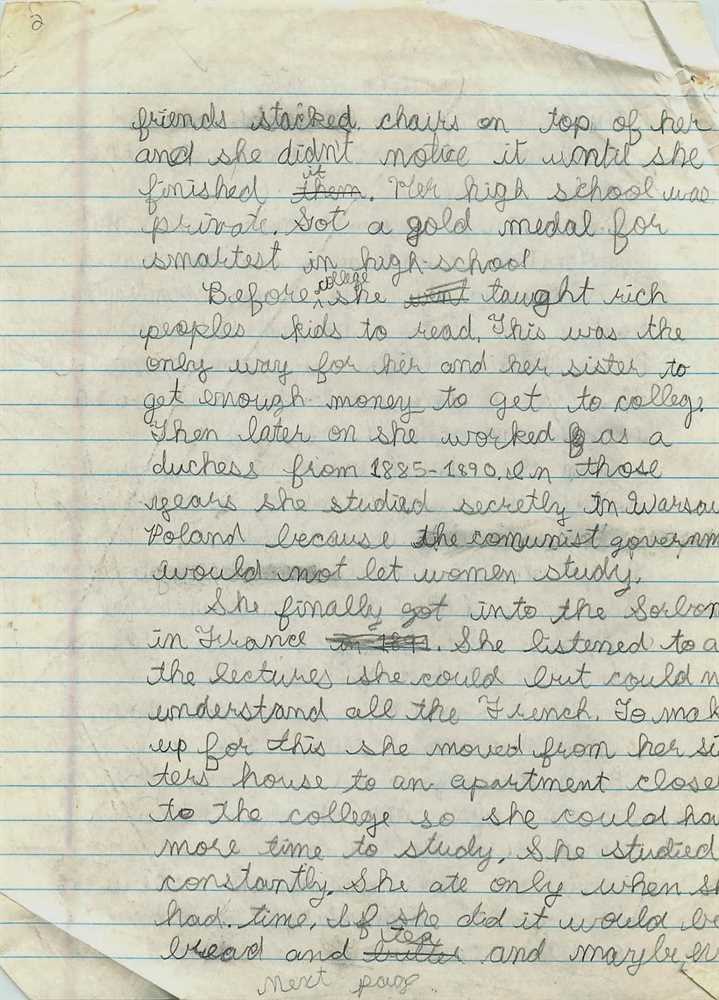 2
friends stacked chairs on top of her
and she didn't notice it until she
it
finished them. Her high school was
private. Got a gold medal for
smartest in high-school
college
Before she went taught rich
peoples kids to read. This was the
only way for her and her sister to
get enough money to get to college.
Then later on she worked as a
duchess from 1885-1890. In those
years she studied secretly in Warsaw
Poland because the comunist governm
would not let women study.
She finally got into the Sorbon
in France in 1891. She listened to a
the lectures she could but could n
understand all the French. To mak
up for this she moved from her sis
ters house to an apartment close
to the college so she could ha
more time to study. She studied
constantly. She ate only when sh
had time. If she did it would be
tea
bread and butter and maybe
Next page